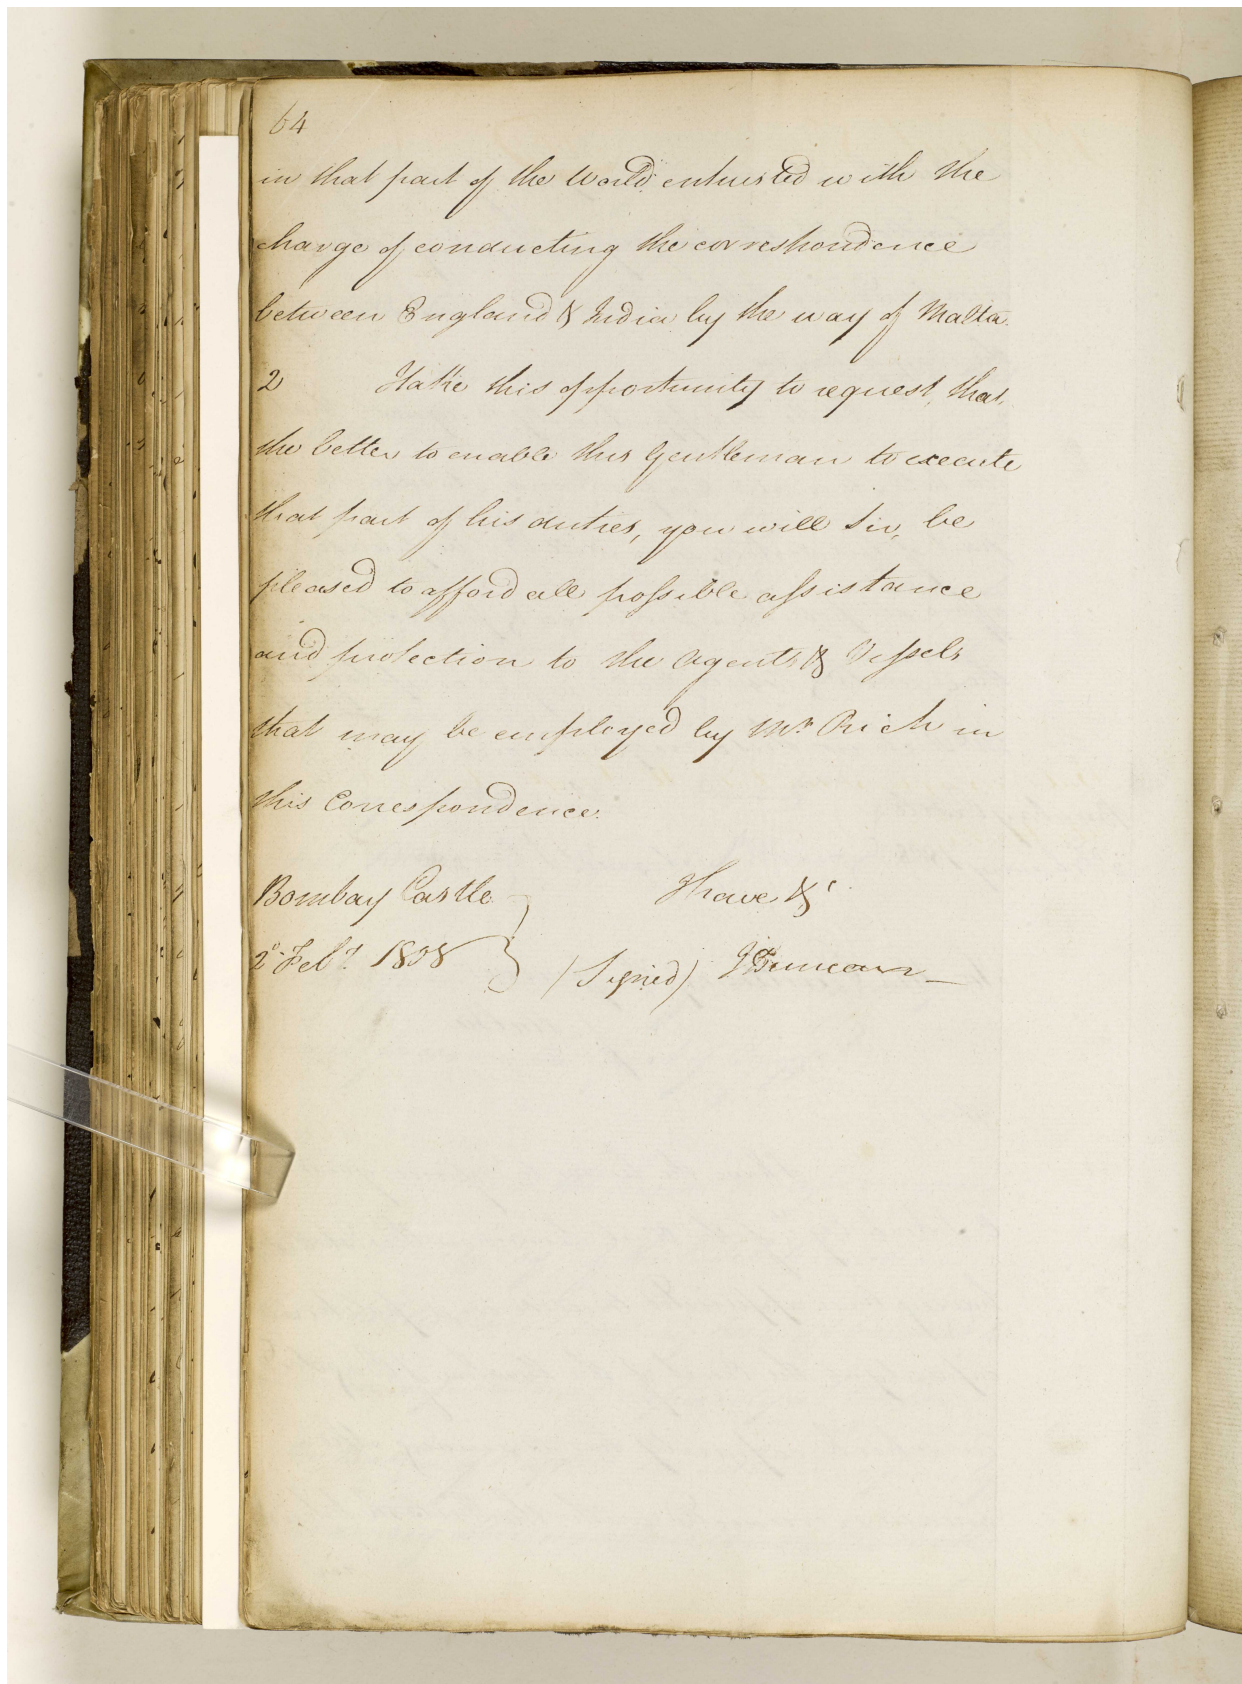 64
in that part of the World entrusted with the
charge of conducting the correspondence
between England & India by the way of Malta.
2 I take this opportunity to request, that,
the better to enable this Gentleman to execute
that part of his duties, you will Sir, be
pleased to afford all possible assistance
and protection to the Agents & Vessels
that may be employed by Mr Rich in
this Correspondence.
Bombay Castle I have &c
2d Feby 1808 (Signed) J Duncan